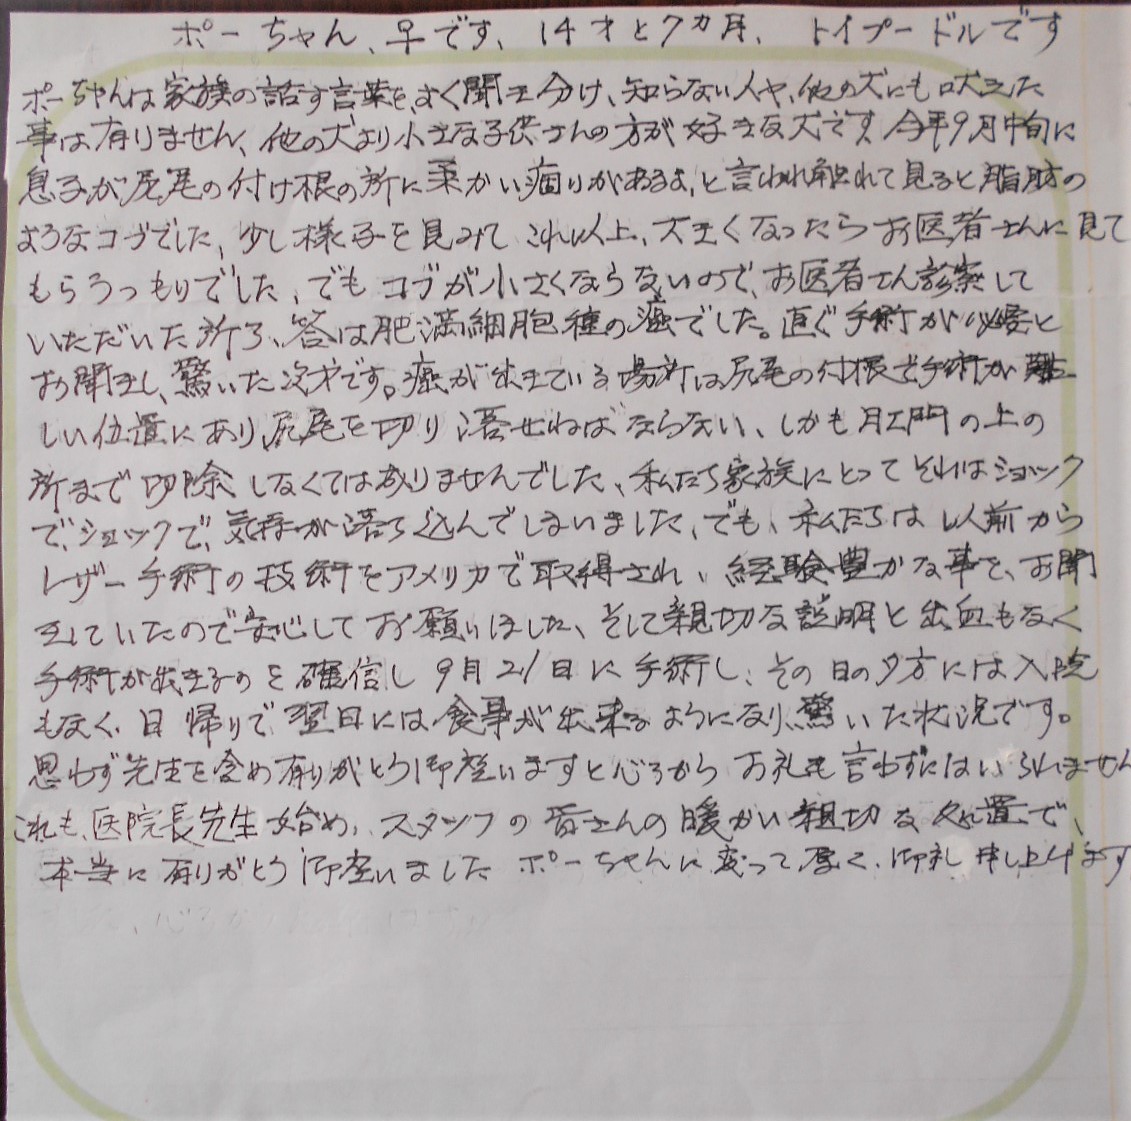 ポーちゃん、♀です、14才と7カ月、トイプードルです
ポーちゃんは家族の話す言葉を、よく聞き分け、知らない人や、他の犬にも吠えた
事は有りません、他の犬より小さな子供さんの方が好きな犬です、今年9月中旬に
息子が尻尾の付け根の所に柔かい痼りがあるよ、と言われ触れて見ると脂肪の
ようなコブでした、少し様子を見みて これ以上、大きくなったらお医者さんに見て
もらうつもりでした、でもコブが小さくならないので、お医者さん診察して
いただいた所ろ、答は肥満細胞種の癌でした。直ぐ手術が必要と
お聞きし、驚いた次才です。癌が出きている場所は尻尾の付根で手術が難
しい位置にあり、尻尾を切り落せねばならない、しかも肛門の上の
所まで切除しなくてはありませんでした、私たち家族にとってそれはショック
で、ショックで、気持が落ち込んでしまいました、でも、私たちは以前から
レザー手術の技術をアメリカで取得され、経験豊かな事を、お聞
きしていたので安心してお願いしました、そして親切な説明と出血もなく
手術が出きるのを確信し9月21日に手術し、その日の夕方には入院
もなく、日帰りで翌日には食事が出来るようになり、驚いた状況です。
思わず先生を含め有りがとう御座いますと心ろからお礼を言わずにはいられません
これも、医院長先生始め、スタッフの皆さんの暖かい親切な処置で、
本当に有りがとう御座いました ポーちゃんに変って厚く、御礼申し上げます